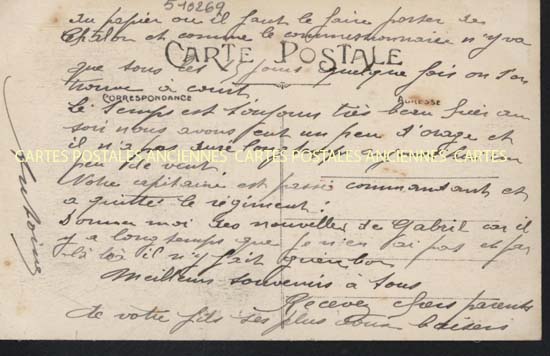 510269
du papier ou il faut le faire porter de
Chalon et comme le commissionnaire n'y va
CARTE POSTALE
que tous les jours quelque fois on s'en
trouve à court
CORRESPONDANCE
ADRESSE
Le temps est toujours très beau hier au
soir nous avons eut un peu d'orage et
il n'a pas duré longtemps
CARTES POSTALES ANCIENNES CARTES POSTALES ANCIENNES CARTES
peu de vent.
Notre capitaine est passé commandant et
a quitté le régiment.
Donner moi des nouvelles de Gabril car il
y a longtemps que je n'en ai pas et par
là bà il n'y fait guère bon
Meilleurs souvenirs à tous
Recevez chers parents
de votre fils ses plus doux baisers
Antoine